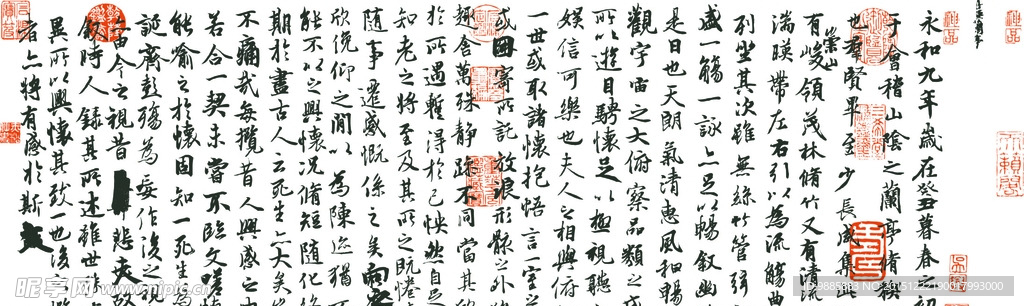 永和九年歲在癸丑暮春之初
于會稽山陰之蘭亭脩禊
也羣賢畢至少長咸集
有崇山峻領茂林脩竹又有清流
湍暎帶左右引以為流觴曲
列坐其次雖無絲竹管弦
盛一觴一詠亦足以暢敘幽
是日也天朗氣清惠風和暢
觀宇宙之大俯察品類之盛
所以遊目騁懷足以極視聽
娛信可樂也夫人之相與俯
一世或取諸懷抱悟言一室之
或因寄所託放浪形骸之外
趣舍萬殊靜躁不同當其
於所遇蹔得於己怏然自足
知老之將至及其所之既惓
隨事遷感慨係之矣向
欣俛仰之閒以為陳迹猶不
能不以之興懷況脩短隨化
期於盡古人云死生亦大矣
不痛哉每攬昔人興感之由
若合一契未嘗不臨文嗟悼
能喻之於懷固知一死生為
誕齊彭殤為妄作後之視
由今之視昔悲夫故
敘時人錄其所述雖世殊
異所以興懷其致一也後
者亦將有感於斯文
昵享网 www.nipic.cn
ID:9885883 NO:20151222190017993000